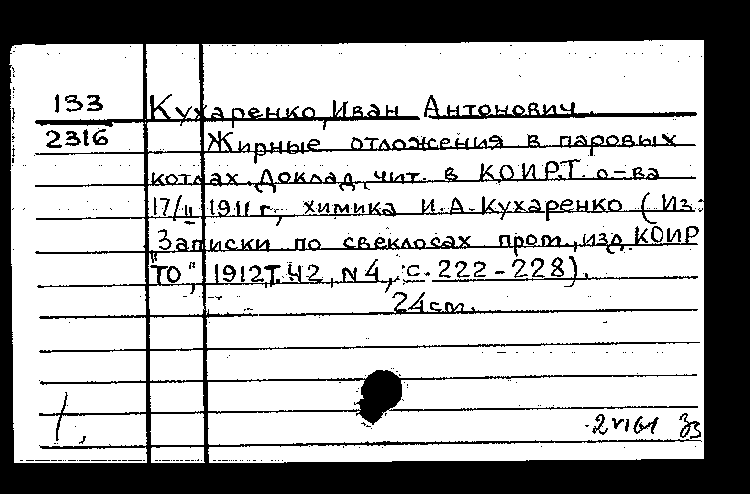 133
2316
Кухаренко, Иван Антонович.
Жирные отложения в паровых
котлах. Доклад, чит. в КОИР.Т. о-ва
17/II 1911 г., химика И.А. Кухаренко (Из:
Записки по свеклосах пром., изд. КОИР
"ТО", 1912, Т. 42, N 4, с. 222-228).
24 см.